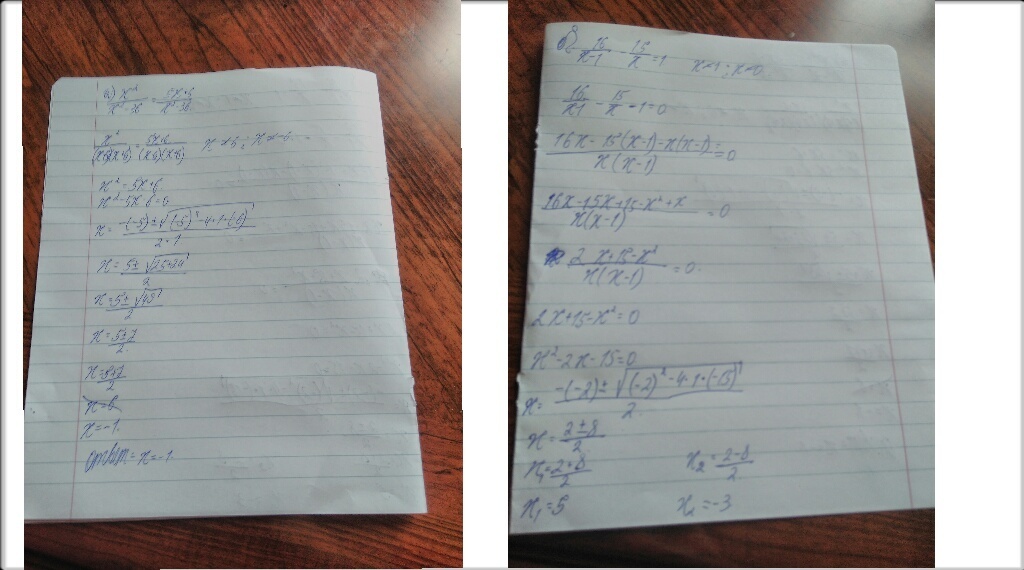 а) x²/(x²-36) = (5x+6)/(x²-36)
x²/((x-6)(x+6)) = (5x+6)/((x-6)(x+6)) x≠6; x≠-6
x²=5x+6
x²-5x-6=0
x=(-(-5)±√((-5)²-4·1·(-6)))/(2·1)
x=(5±√(25+24))/2
x=(5±√49)/2
x=(5±7)/2
x=(5±7)/2
x=6
x=-1
ответ= x=-1.
б) 16/(x-1) - 15/x=1 x≠1; x≠0
16/(x-1) - 15/x -1=0
(16x-15(x-1)-x(x-1))/(x(x-1))=0
(16x-15x+15-x²+x)/(x(x-1))=0
(2x+15-x²)/(x(x-1))=0.
2x+15-x²=0
x²-2x-15=0
x=(-(-2)±√((-2)²-4·1·(-15)))/2
x=(2±8)/2
x₁=(2+8)/2 x₂=(2-8)/2
x₁=5 x₂=-3